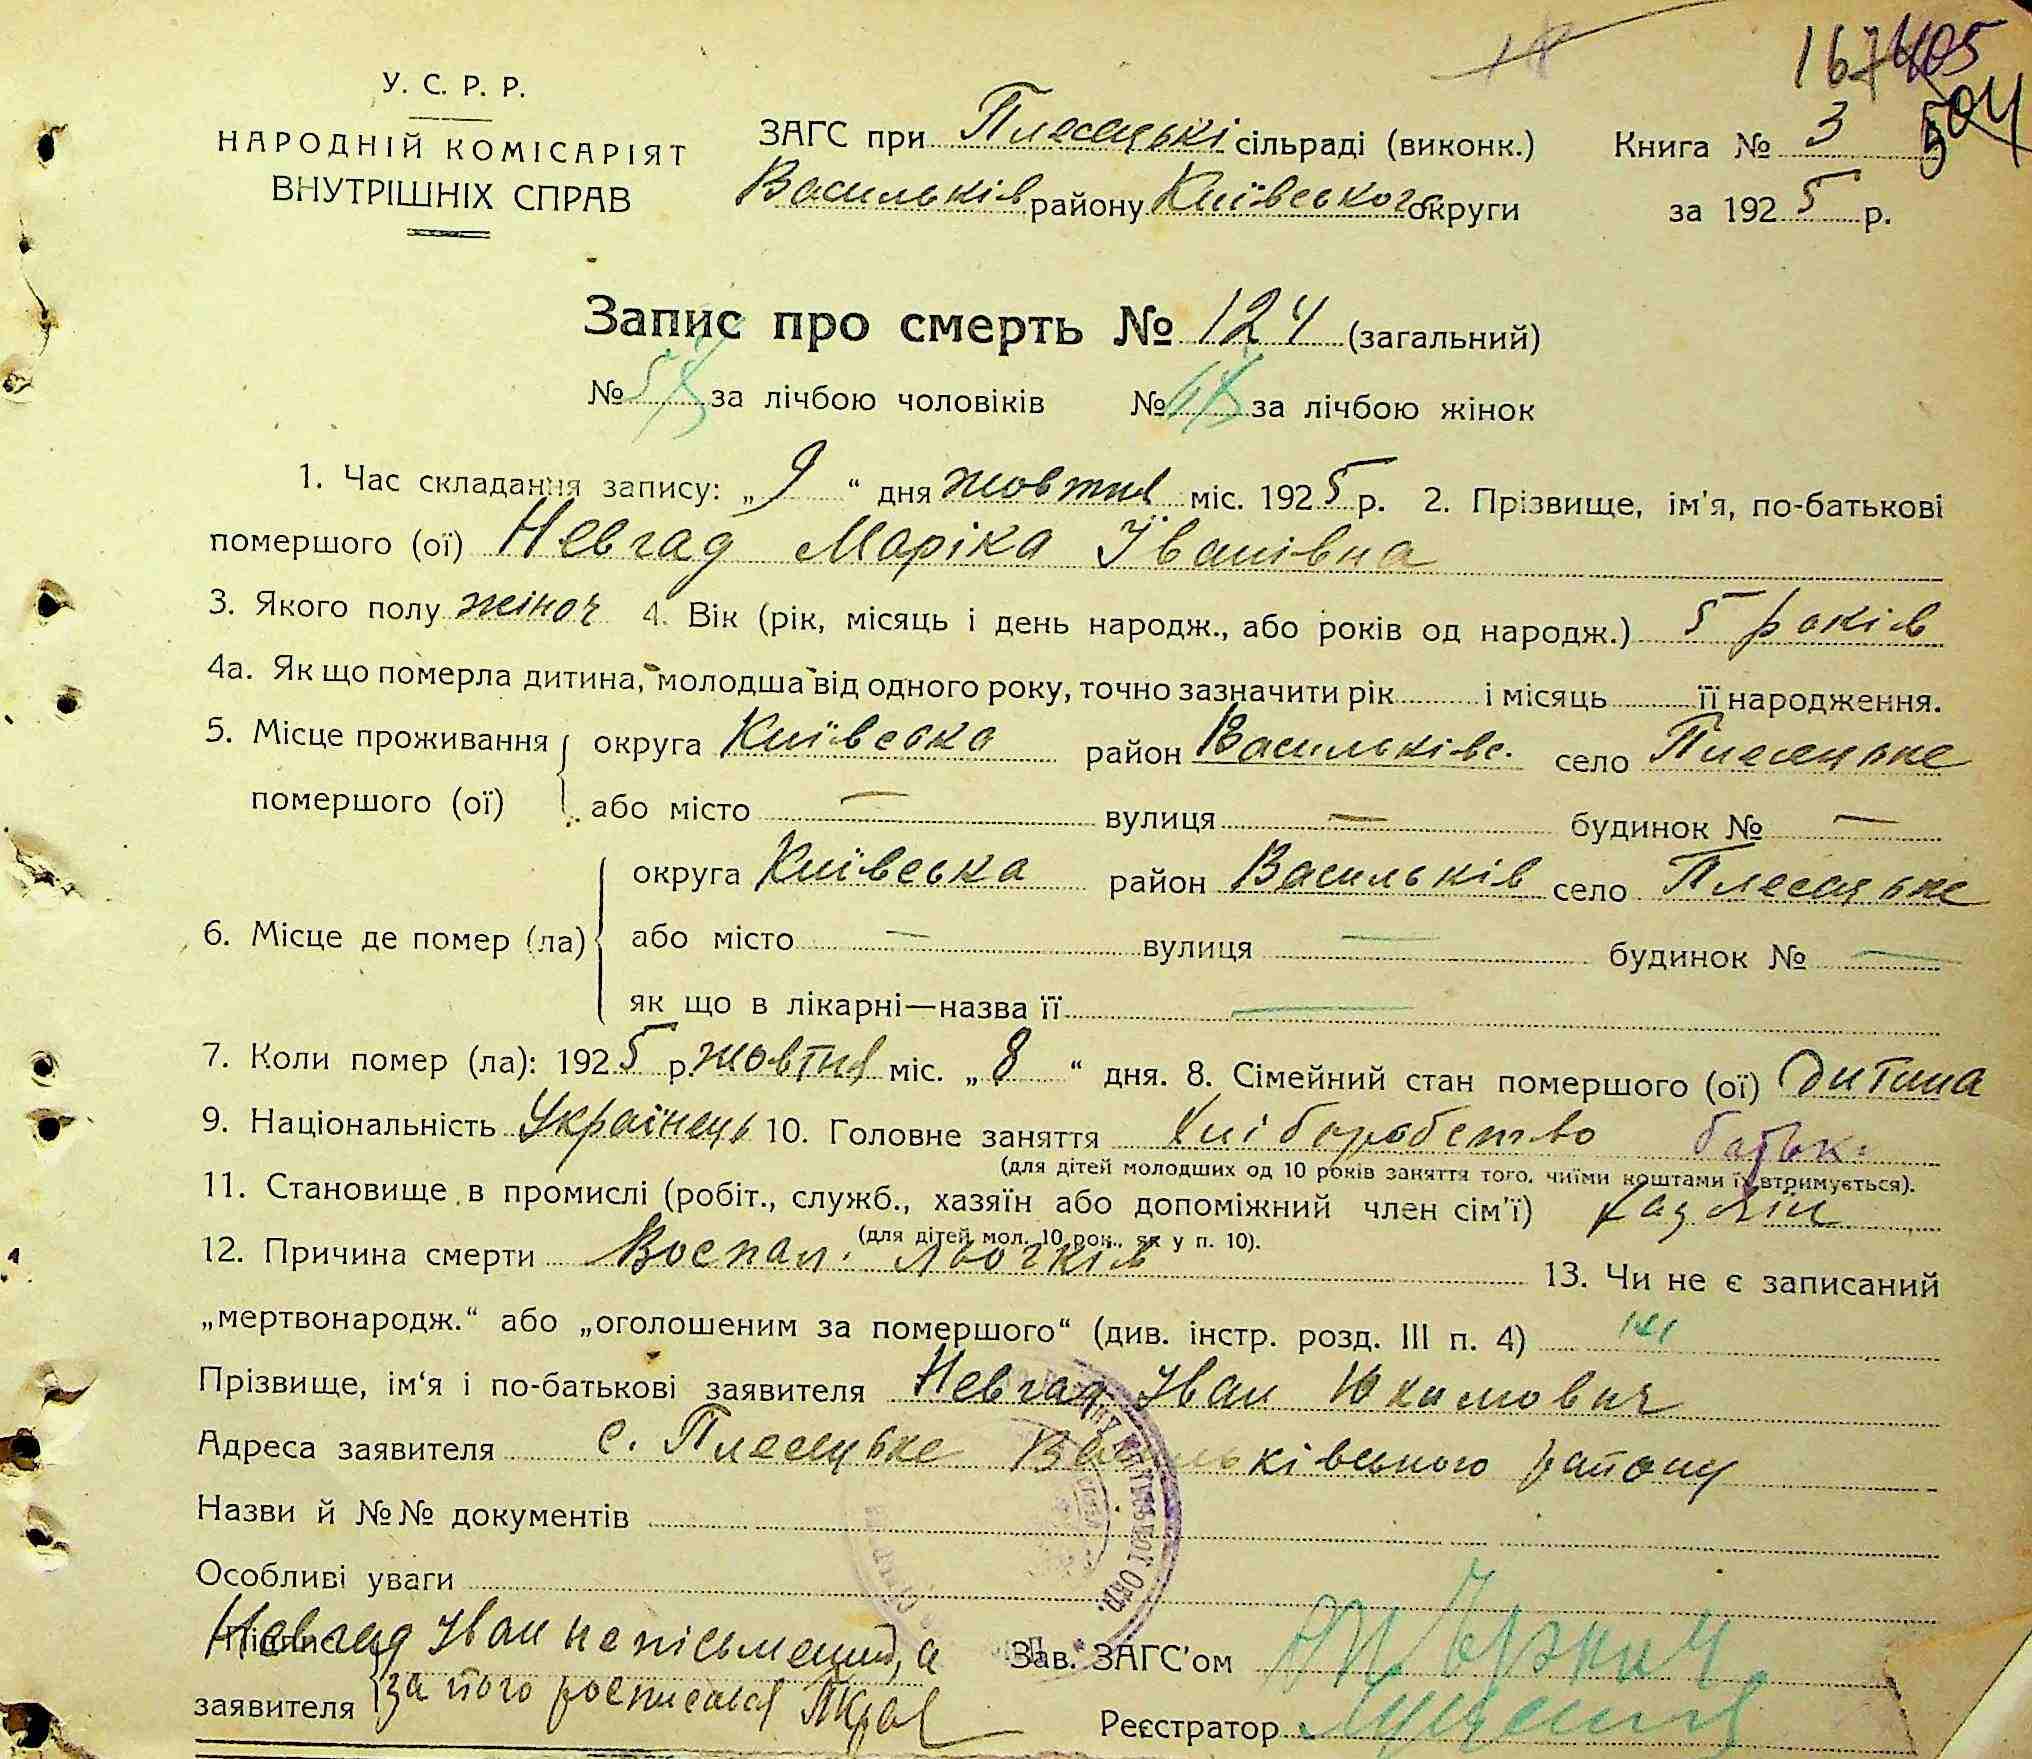 У. С. Р. Р.
НАРОДНІЙ КОМІСАРІЯТ
ВНУТРІШНІХ СПРАВ
ЗАГС при Плесецькі сільраді (виконк.)
Васильків району Київського округи
Книга № 3
за 1925 р.
Запис про смерть № 124 (загальний)
№ за лічбою чоловіків № за лічбою жінок
1. Час складання запису: „9“ дня жовтня міс. 1925 р. 2. Прізвище, ім'я, по-батькові
помершого (ої) Невгад Маріка Іванівна
3. Якого полу жіноч 4. Вік (рік, місяць і день народж., або років од народж.) 5 років
4а. Як що померла дитина, молодша від одного року, точно зазначити рік і місяць її народження.
5. Місце проживання округа Київська район Васильківс. село Плесецьке
помершого (ої) або місто — вулиця — будинок № —
округа Київська район Васильків село Плесецьке
6. Місце де помер (ла) або місто — вулиця — будинок № —
як що в лікарні—назва її —
7. Коли помер (ла): 1925 р. жовтня міс. „8“ дня. 8. Сімейний стан помершого (ої) дитина
9. Національність Українець 10. Головне заняття Хліборобство батьк.
(для дітей молодших од 10 років заняття того, чиїми коштами їх втримується).
11. Становище в промислі (робіт., служб., хазяїн або допоміжний член сім'ї) хазяїн
(для дітей мол. 10 рок., як у п. 10).
12. Причина смерти Воспал. льогків 13. Чи не є записаний
„мертвонародж.“ або „оголошеним за помершого“ (див. інстр. розд. III п. 4) ні
Прізвище, ім'я і по-батькові заявителя Невгад Іван Юхимович
Адреса заявителя с. Плесецьке Васильківського району
Назви й №№ документів
Особливі уваги
Підпис Невгад Іван неписьмений, а
заявителя за його росписався
Зав. ЗАГС'ом
Реєстратор